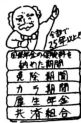 全部で
25年以上!
国民年金の保険料を
納めた期間
免除期間
カラ期間
厚生年金
共済組合